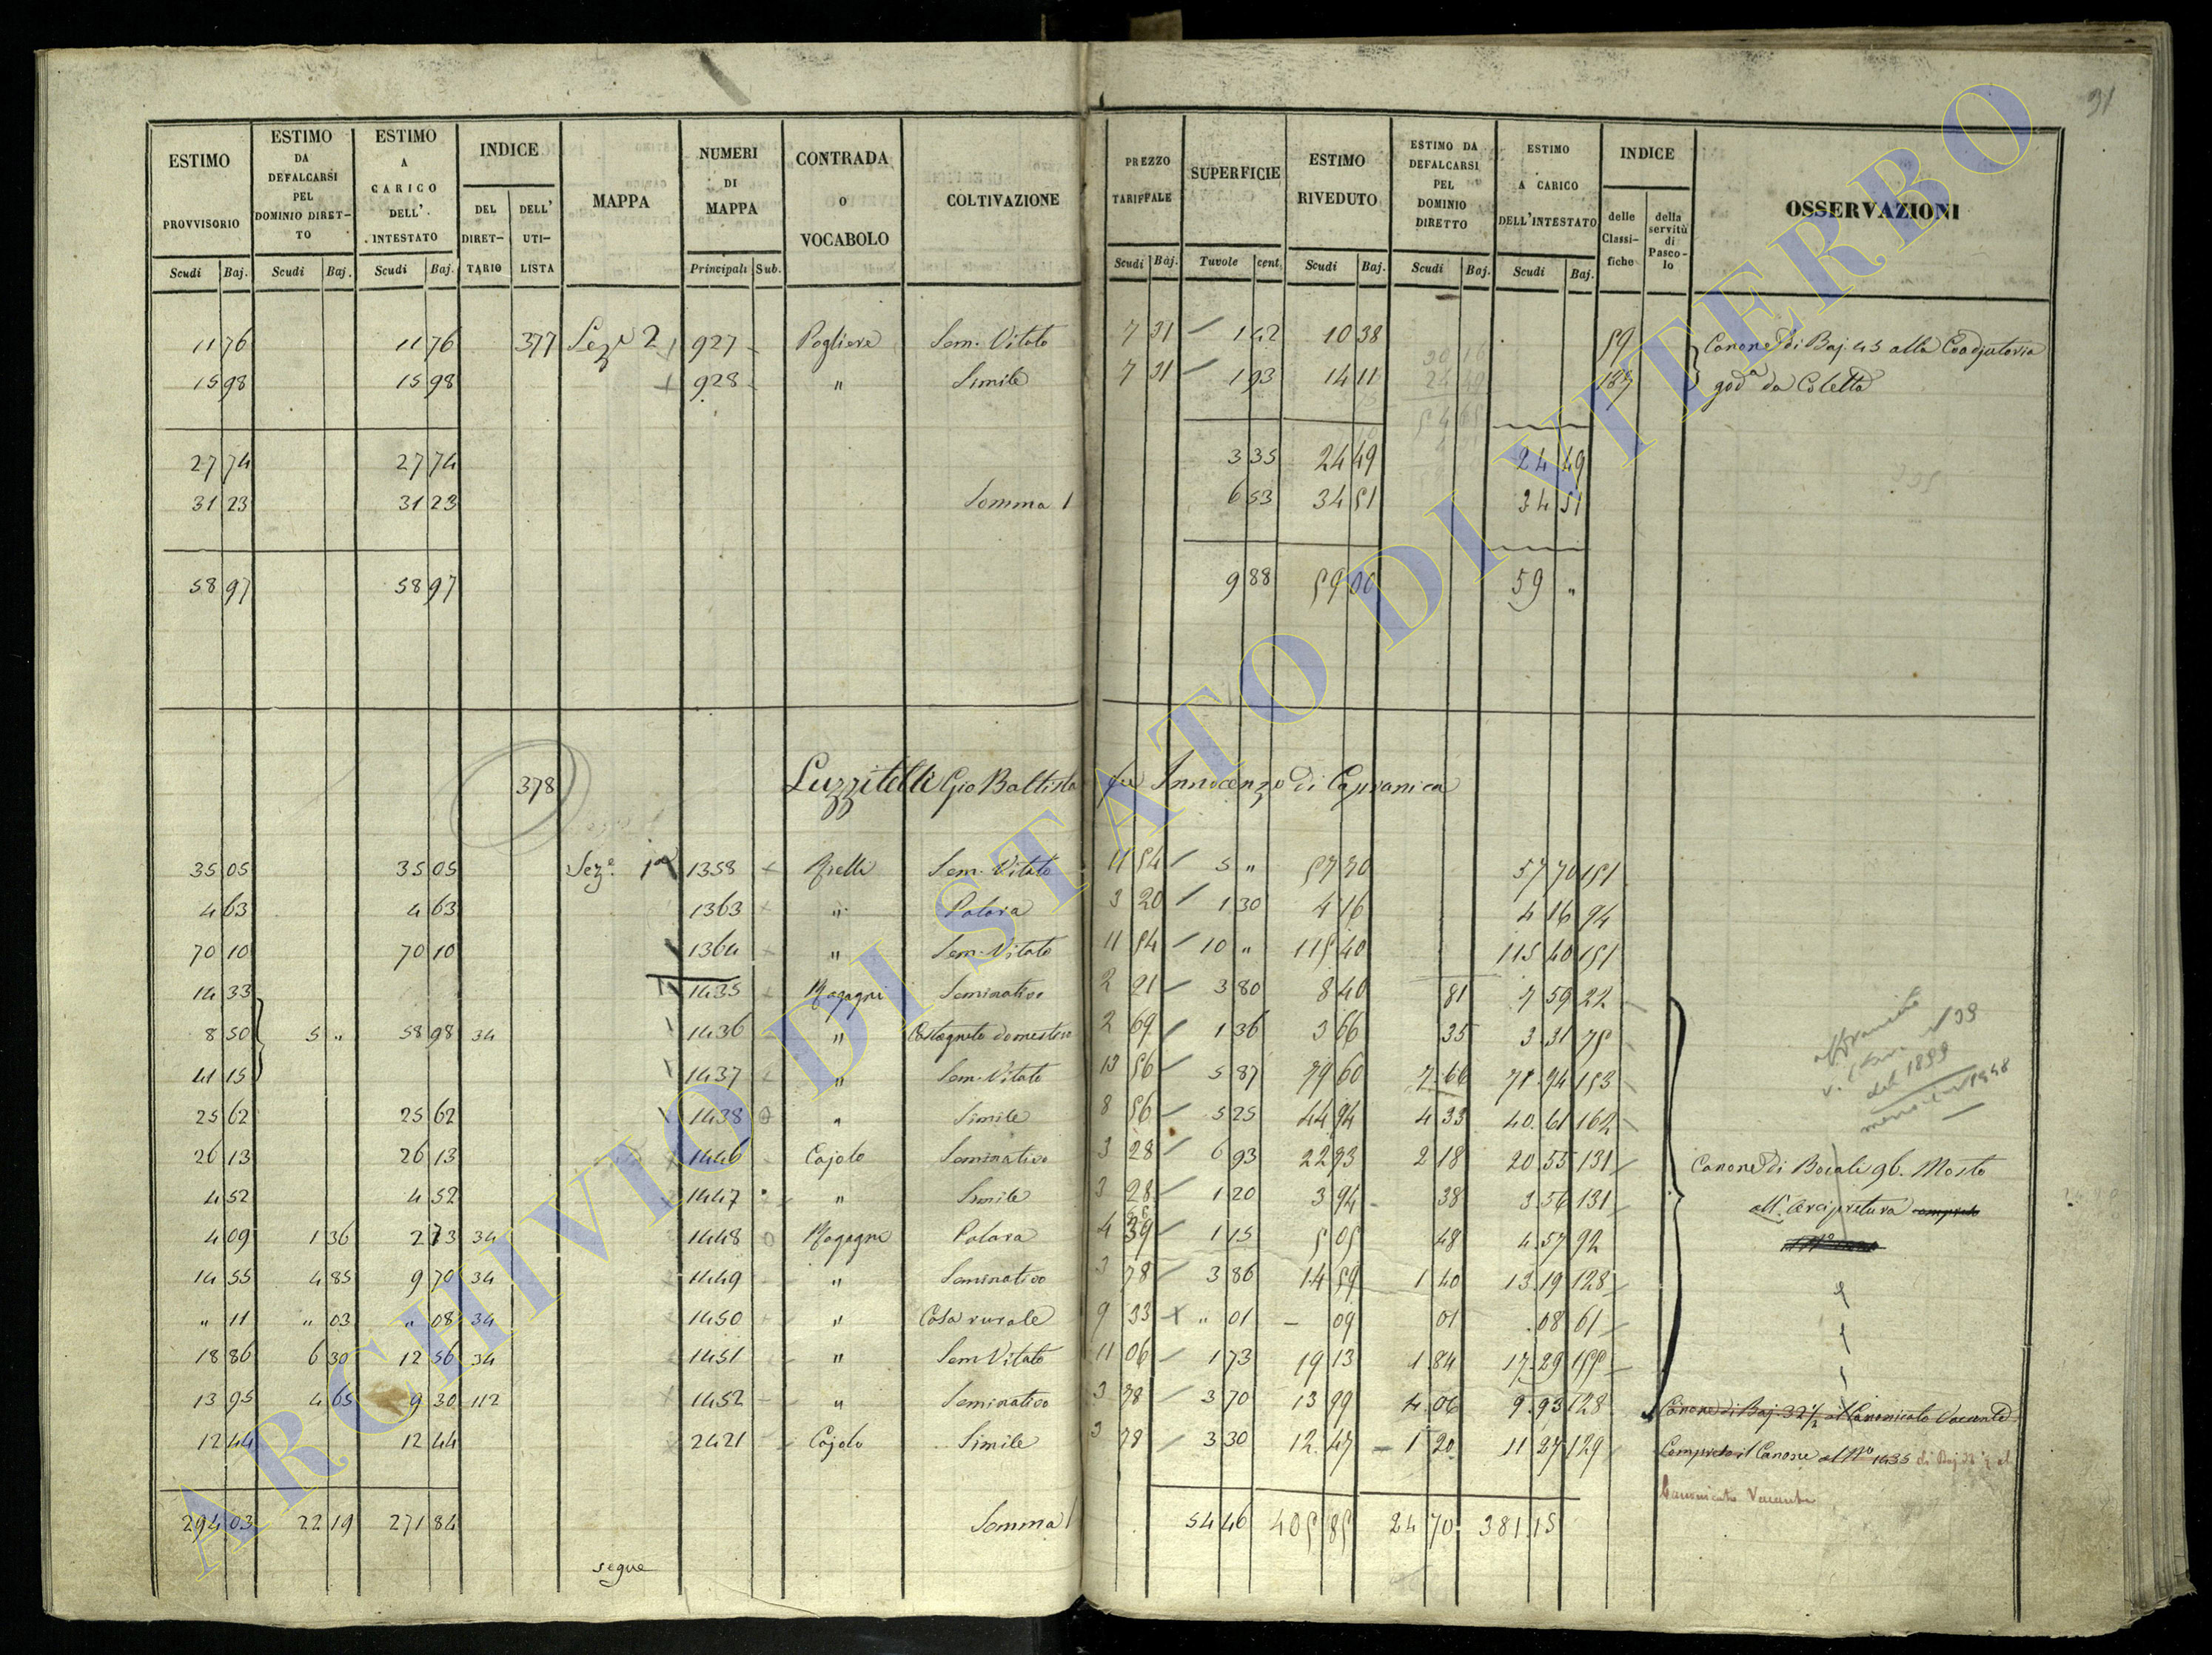 31
ESTIMO PROVVISORIO Scudi Baj.
ESTIMO DA DEFALCARSI PEL DOMINIO DIRETTO Scudi Baj.
ESTIMO A CARICO DELL' INTESTATO Scudi Baj.
INDICE DEL DIRETTARIO DELL' UTILISTA
MAPPA
NUMERI DI MAPPA Principali Sub.
CONTRADA O VOCABOLO
COLTIVAZIONE
PREZZO TARIFFALE Scudi Baj.
SUPERFICIE Tavole cent.
ESTIMO RIVEDUTO Scudi Baj.
ESTIMO DA DEFALCARSI PEL DOMINIO DIRETTO Scudi Baj.
ESTIMO A CARICO DELL'INTESTATO Scudi Baj.
INDICE delle Classifiche della servitù di Pascolo
OSSERVAZIONI
11 76 11 76 377 Sez.e 2 927 Pogliere Sem. Vitato 7 31 1 42 10 38 59 Canone di Baj. 43 alla Coadjutoria
15 98 15 98 928 " Simile 7 31 1 93 14 11 187 god.a da Coletta
27 74 27 74 3 35 24 49 24 49
31 23 31 23 Somma 1 6 53 34 51 34 51
58 97 58 97 9 88 59 00 59 "
378 Luzzitelli Gio Battista fu Innocenzo di Capranica
35 05 35 05 Sez.e 1a 1358 Sem. Vitato 11 54 5 " 57 70 57 70 151
4 63 4 63 1363 " 3 20 1 30 4 16 4 16 94
70 10 70 10 1364 " Sem. Vitato 11 54 10 " 115 40 115 40 151
14 33 1435 Magagni Seminativo 2 21 3 80 8 40 81 7 59 22
8 50 5 " 58 98 34 1436 " Castagneto domestico 2 69 1 36 3 66 35 3 31 75
41 15 1437 " Sem. Vitato 13 56 5 87 79 60 7 66 71 94 153
25 62 25 62 1438 " Simile 8 56 5 25 44 94 4 33 40 61 162
26 13 26 13 1446 Cajolo Seminativo 3 28 6 93 22 93 2 18 20 55 131 Canone di Bocali 96. Mosto
4 52 4 52 1447 " Simile 3 28 1 20 3 94 38 3 56 131 all'Arcipretura
4 09 1 36 2 73 34 1448 Magagni 4 39 1 15 5 05 48 4 57 92
14 55 4 85 9 70 34 1449 " Seminativo 3 78 3 86 14 59 1 40 13 19 128
" 11 " 03 " 08 34 1450 " Casa rurale 9 33 " 01 09 01 08 61
18 86 6 30 12 56 34 1451 " Sem Vitato 11 06 1 73 19 13 1 84 17 29 155
13 95 4 65 9 30 112 1452 " Seminativo 3 78 3 70 13 99 4 06 9 93 128 Canone di Baj. 32 1/2 al Canonicato Vacante
12 44 12 44 2421 Cajolo Simile 3 78 3 30 12 47 1 20 11 27 129 Compreso il Canone al N.o 1435
Canonicato Vacante
294 03 22 19 271 84 Somma 1 54 46 405 85 24 70 381 15
segue
ARCHIVIO DI STATO DI VITERBO